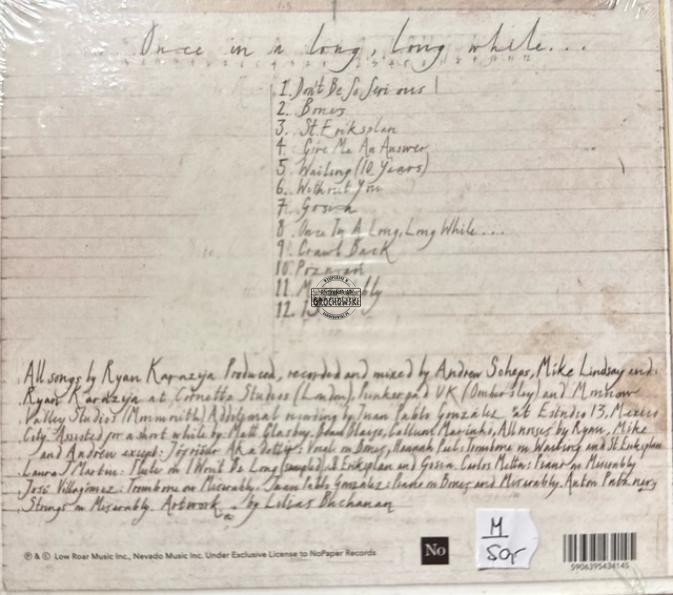 Once in a long, long while...
1. Don't Be So Serious
2. Bones
3. St. Eriksplan
4. Give Me An Answer
5. Waiting (10 Years)
6. Without You
7. Gosia
8. Once In A Long, Long While...
9. Crawl Back
10. Poznań
11. M bly
12. 13
GROCHOWSKI
All songs by Ryan Karazija Produced, recorded and mixed by Andrew Scheps, Mike Lindsay and
Ryan Karazija at Cornetta Studios (London), Punkerpad UK (Ombersley) and Monnow
Valley Studios (Monmouth) Additional recording by Juan Pablo González at Estudio 13, Mexico
City. Assisted for a short while by: Matt Glasbey, Callum Marinho, All noises by Ryan, Mike
and Andrew except: Jófríður Ákadóttir: Vocals on Bones, Hannah Peel: Trombone on Waiting and St. Eriksplan
Laura J Martin: Flute on I Won't Be Long (sampled), St Eriksplan and Gosia. Carlos : Piano on Miserably
José Villagómez: Trombone on Miserably. Juan Pablo González: Piano on Bones and Miserably. Anton
Strings on Miserably. Artwork by Lilias Buchanan
℗ & © Low Roar Music Inc., Nevado Music Inc. Under Exclusive License to NoPaper Records
No
M
50r
5906395434145